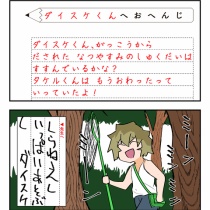 ダイスケくんへおへんじ
ダイスケくん、がっこうから
だされた なつやすみのしゅくだいは
すすんでいるかな？
タケルくんは もうおわったって
いっていたよ！
しらねえし
いっぱいあそぶ
ダイスケ